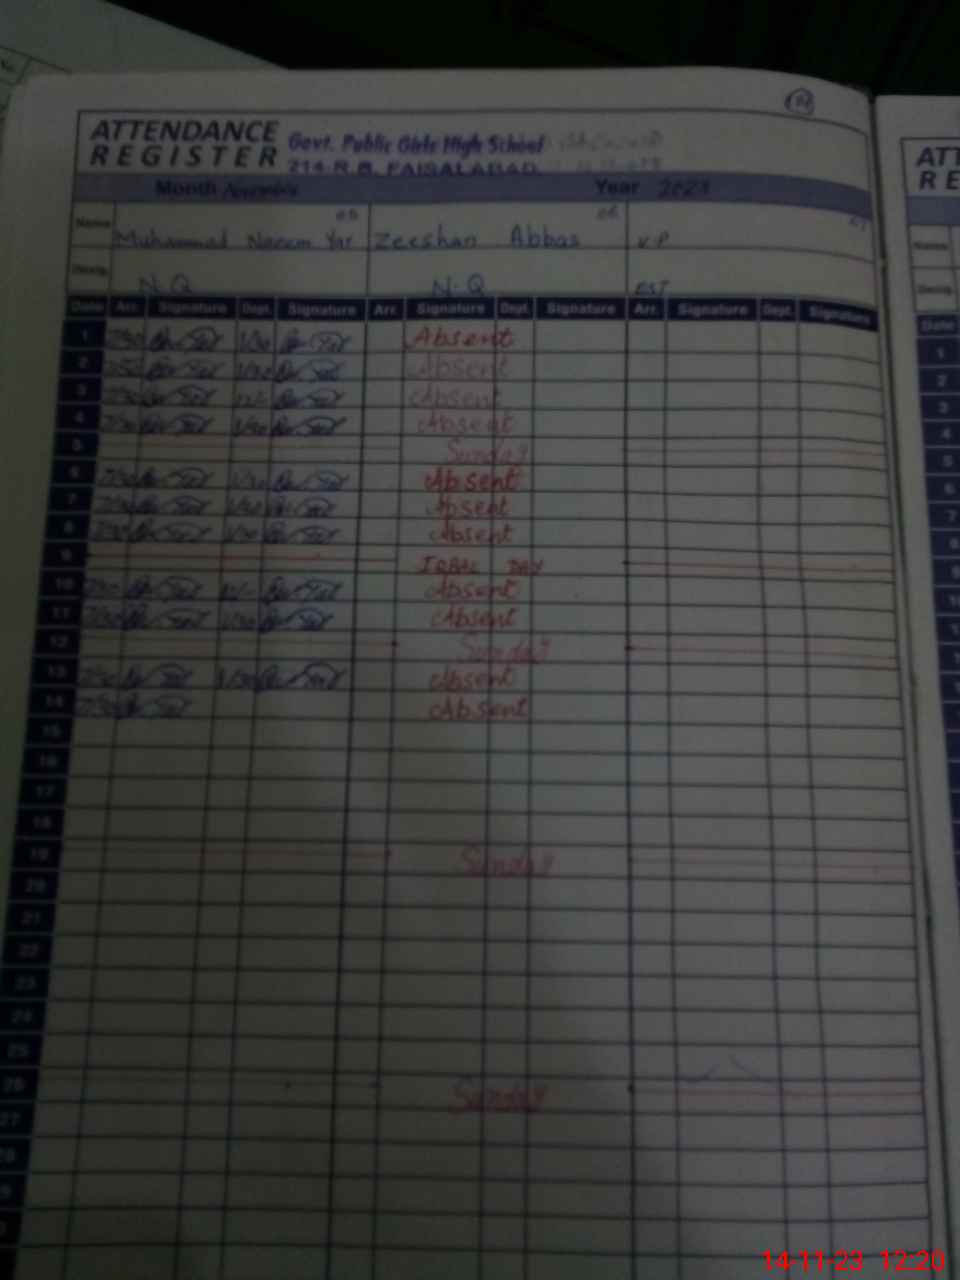 ATTENDANCE REGISTER
Govt. Public Girls High School
214-R.B. FAISALABAD.
Month November Year 2023
Name 05 06 07
Muhammad Naeem Yar Zeeshan Abbas V.P
Desig. N.Q N.Q EST
Date Arr. Signature Dept. Signature Arr. Signature Dept. Signature Arr. Signature Dept. Signature
1 7/30 1/30 Absent
2 1/30 Absent
3 7/30 Absent
4 7/30 1/30 Absent
5 Sunday
6 7/30 1/30 Absent
7 7/30 1/30 Absent
8 7/30 1/30 Absent
9 IQBAL DAY
10 Absent
11 7/30 1/30 Absent
12 Sunday
13 7/30 1/30 Absent
14 7/30 Absent
15
16
17
18
19 Sunday
20
21
22
23
24
25
26 Sunday
27
28
ATT
RE
Name
Desig.
Date
1
2
3
4
5
6
7
8
9
10
14-11-23 12:20